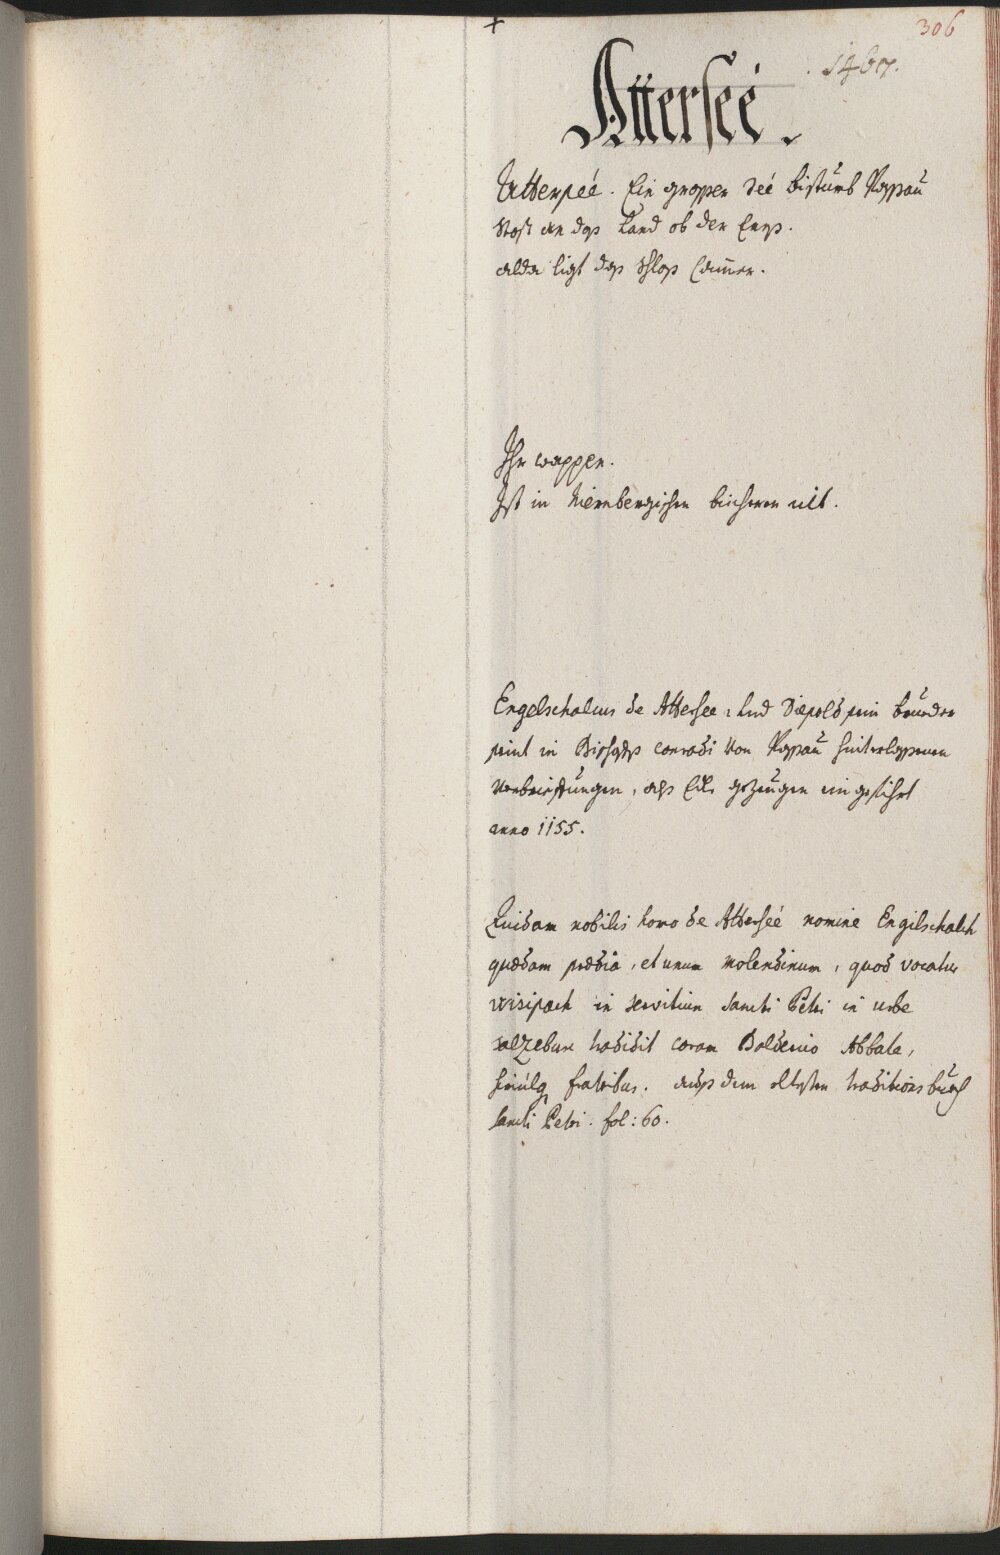 +
306
1467.
Atterseé.
Atterseé. Ein grosser Seé bistumb Passau
stost an das Land ob der Enns.
alda ligt das schlos Camer.
Ihr wappen.
Ist in Niernbergischen biechern nit.
Engelschalcus de Attersee, und Diepold sein brueder
seint in Bischofs conradi von Passau hinterlassnen
verbrieffungen, als Edle gezeugen eingefihrt
anno 1155.
Quidam nobilis homo de Atterseé nomine Engilschalch
quædam prædia, et unum molendinum, quod vocatur
wisipach in servitium sancti Petri in urbe
salzeburc tradidit coram Balderico Abbate,
fratribus. auss dem eltesten traditions buech
sancti Petri. fol: 60.